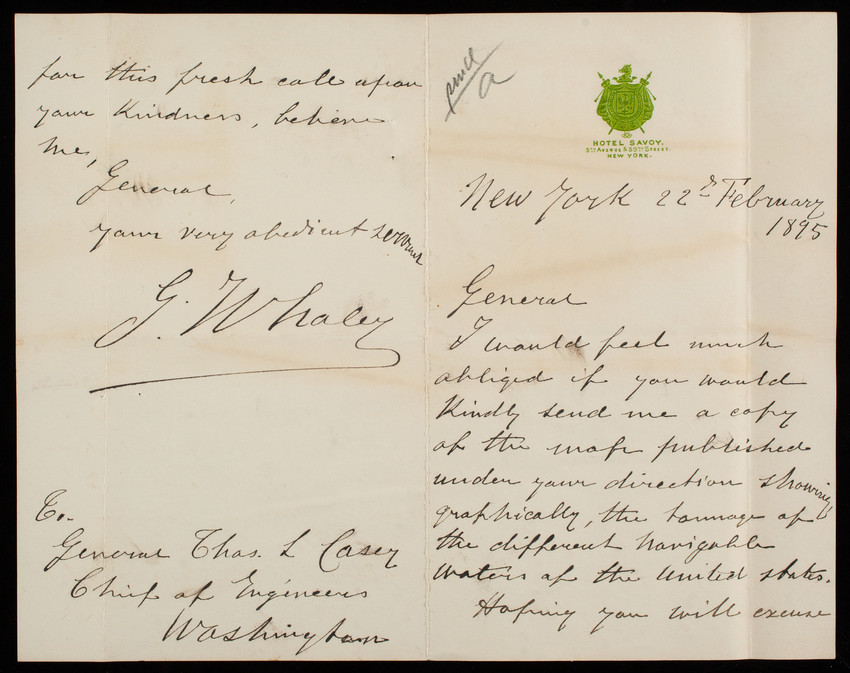 a
HOTEL SAVOY.
5TH AVENUE & 59TH STREET.
NEW YORK.
New York 22d February
1895
General
I would feel much
obliged if you would
Kindly send me a copy
of the map published
under your direction showing
graphically, the tonnage of
the different Navigable
Waters of the United States.
Hoping you will excuse
for this fresh call upon
your Kindness, believe
me,
General,
your very obedient servant
G. Whaley
To.
General Thos. L Casey
Chief of Engineers
Washington